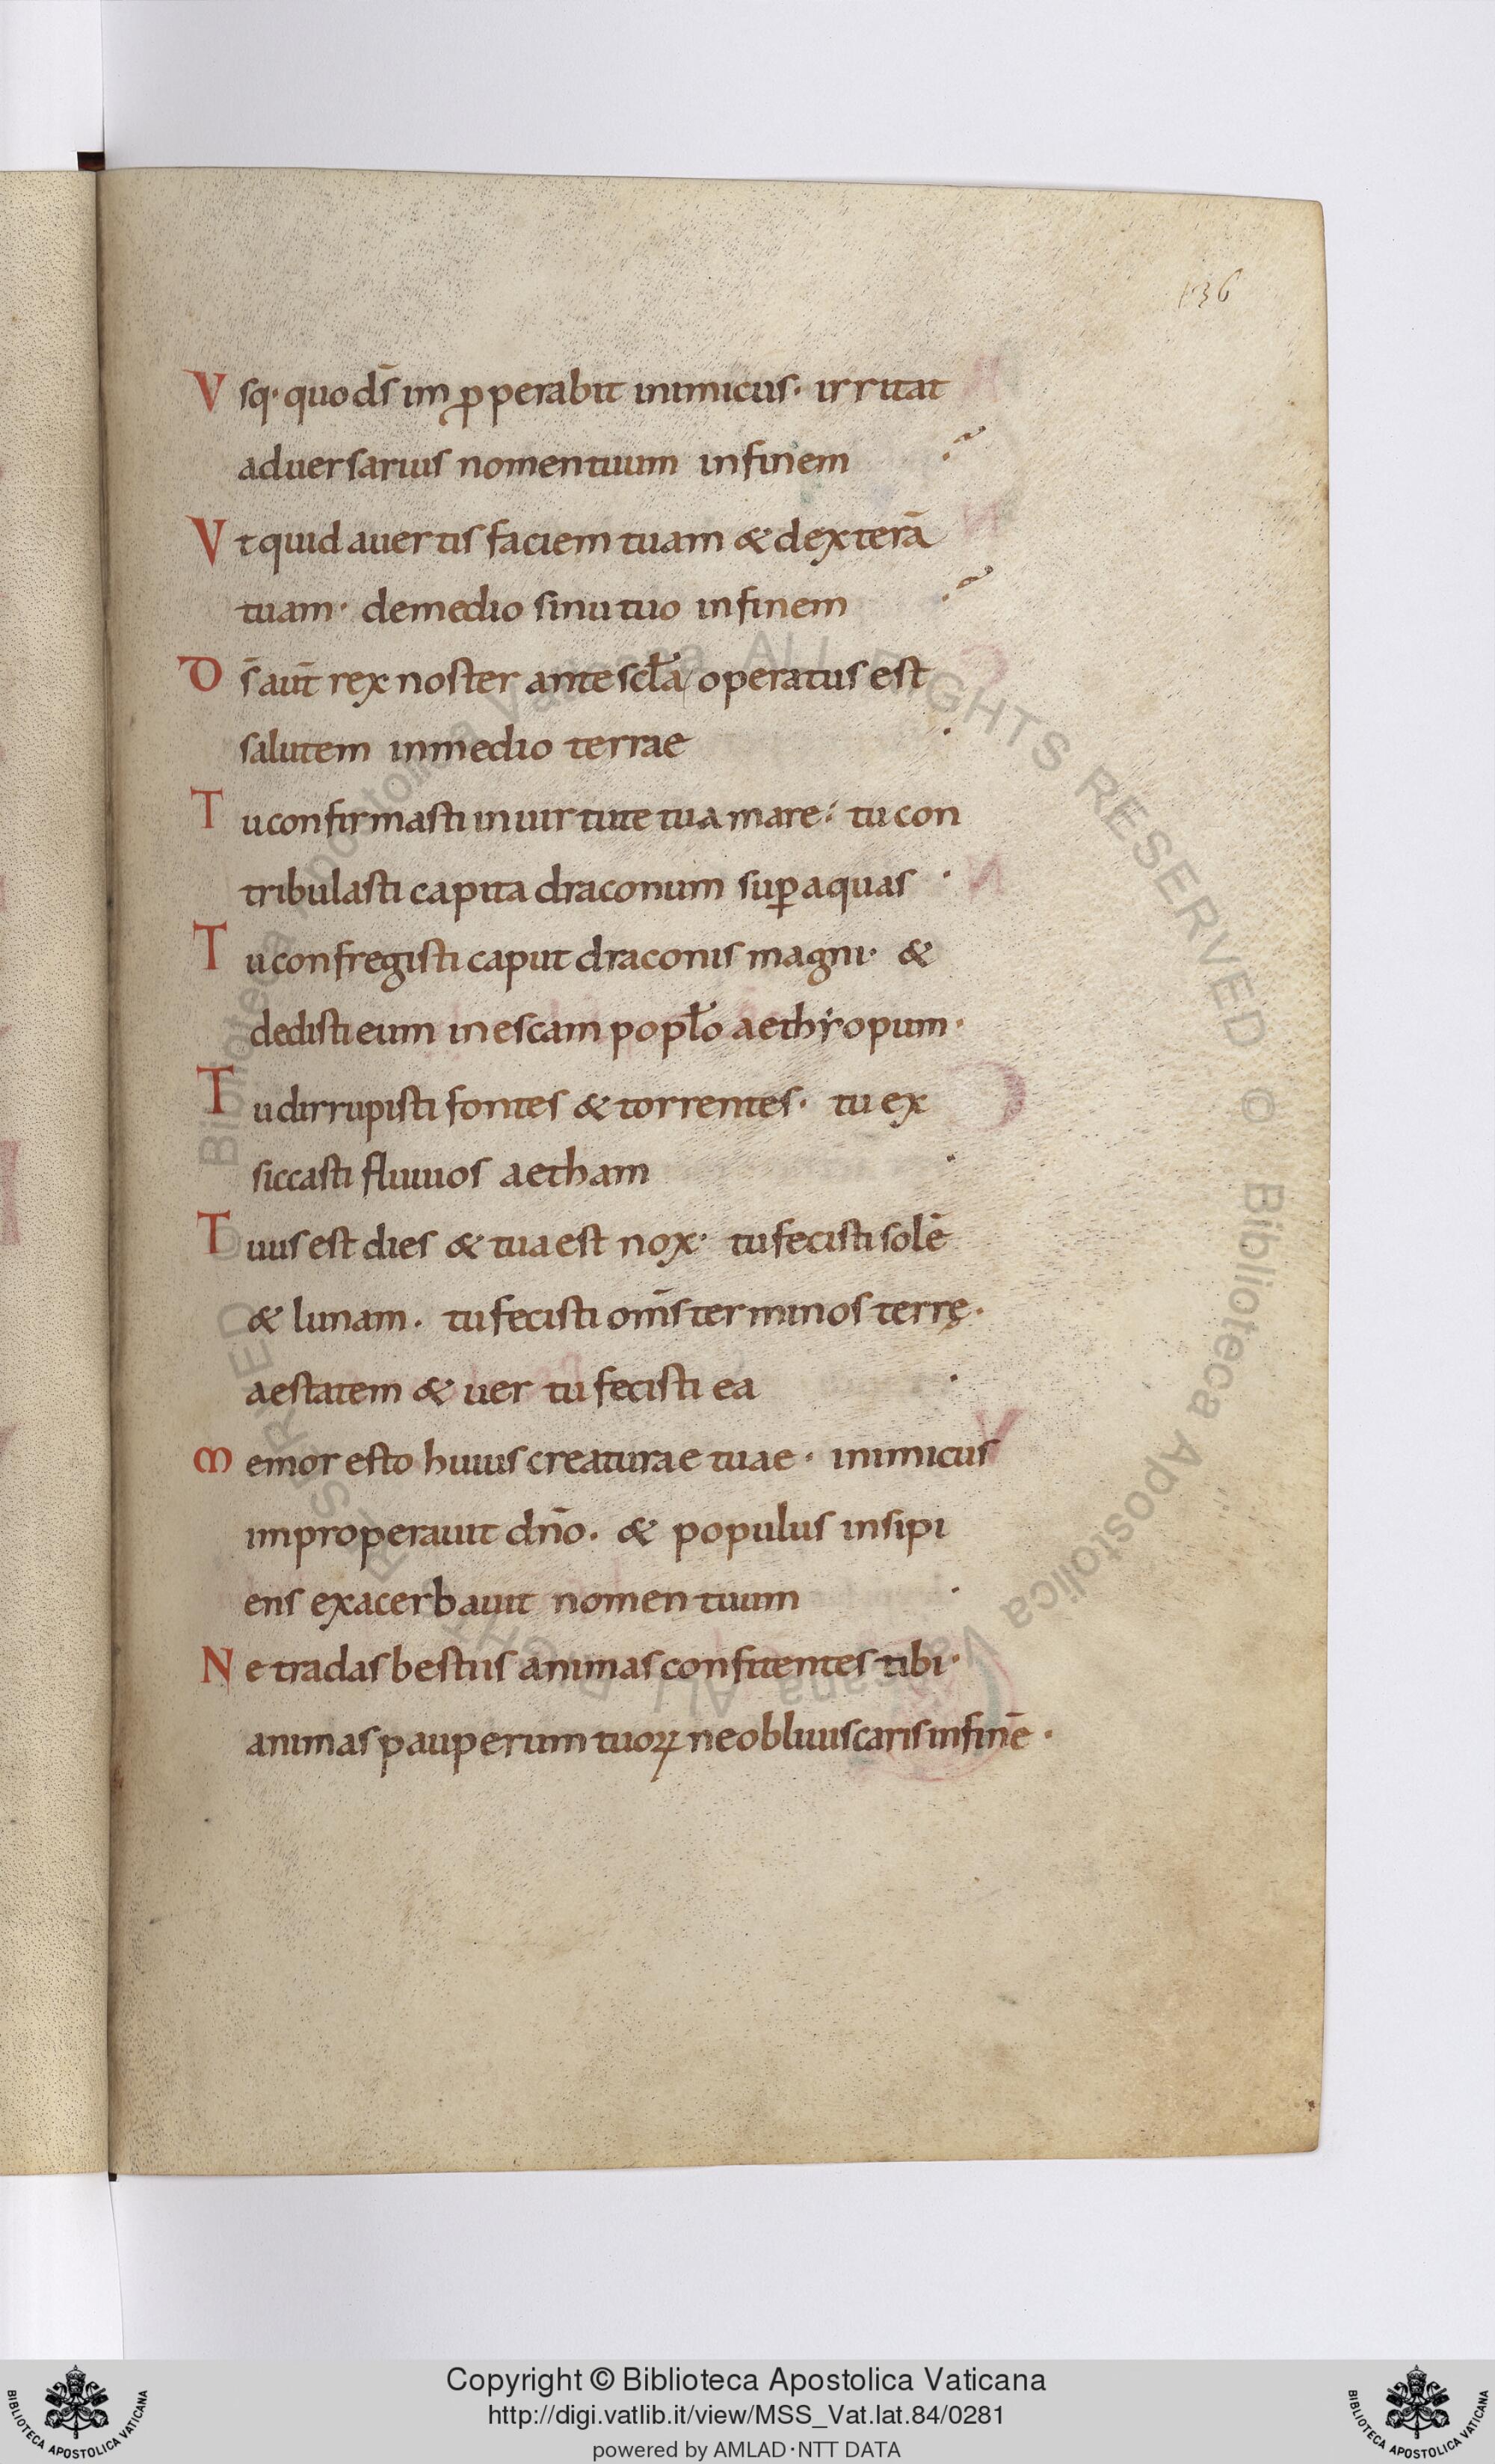 136
Vsq· quo ds̄ im ꝓperabit inimicus· irritat
aduersarius nomen tuum in finem
Vt quid auertis faciem tuam & dexterā
tuam· de medio sinu tuo in finem
Ds̄ aut̄ rex noster ante scła operatus est
salutem in medio terrae
Tu confirmasti in uirtute tua mare· tu con
tribulasti capita draconum suꝑ aquas
Tu confregisti caput draconis magni· &
dedisti eum in escam popło aethẏopum·
Tu dirrupisti fontes & torrentes· tu ex
siccasti fluuios aetham
Tuus est dies & tua est nox· tu fecisti solē
& lunam· tu fecisti om̄s terminos terrę·
aestatem & uer tu fecisti ea
Memor esto huius creaturae tuae· inimicus
improperauit dn̄o· & populus insipi
ens exacerbauit nomen tuum
Ne tradas bestiis animas confitentes tibi·
animas pauperum tuoꝝ ne obliuiscaris in finē·
Copyright © Biblioteca Apostolica Vaticana
http://digi.vatlib.it/view/MSS_Vat.lat.84/0281
powered by AMLAD·NTT DATA